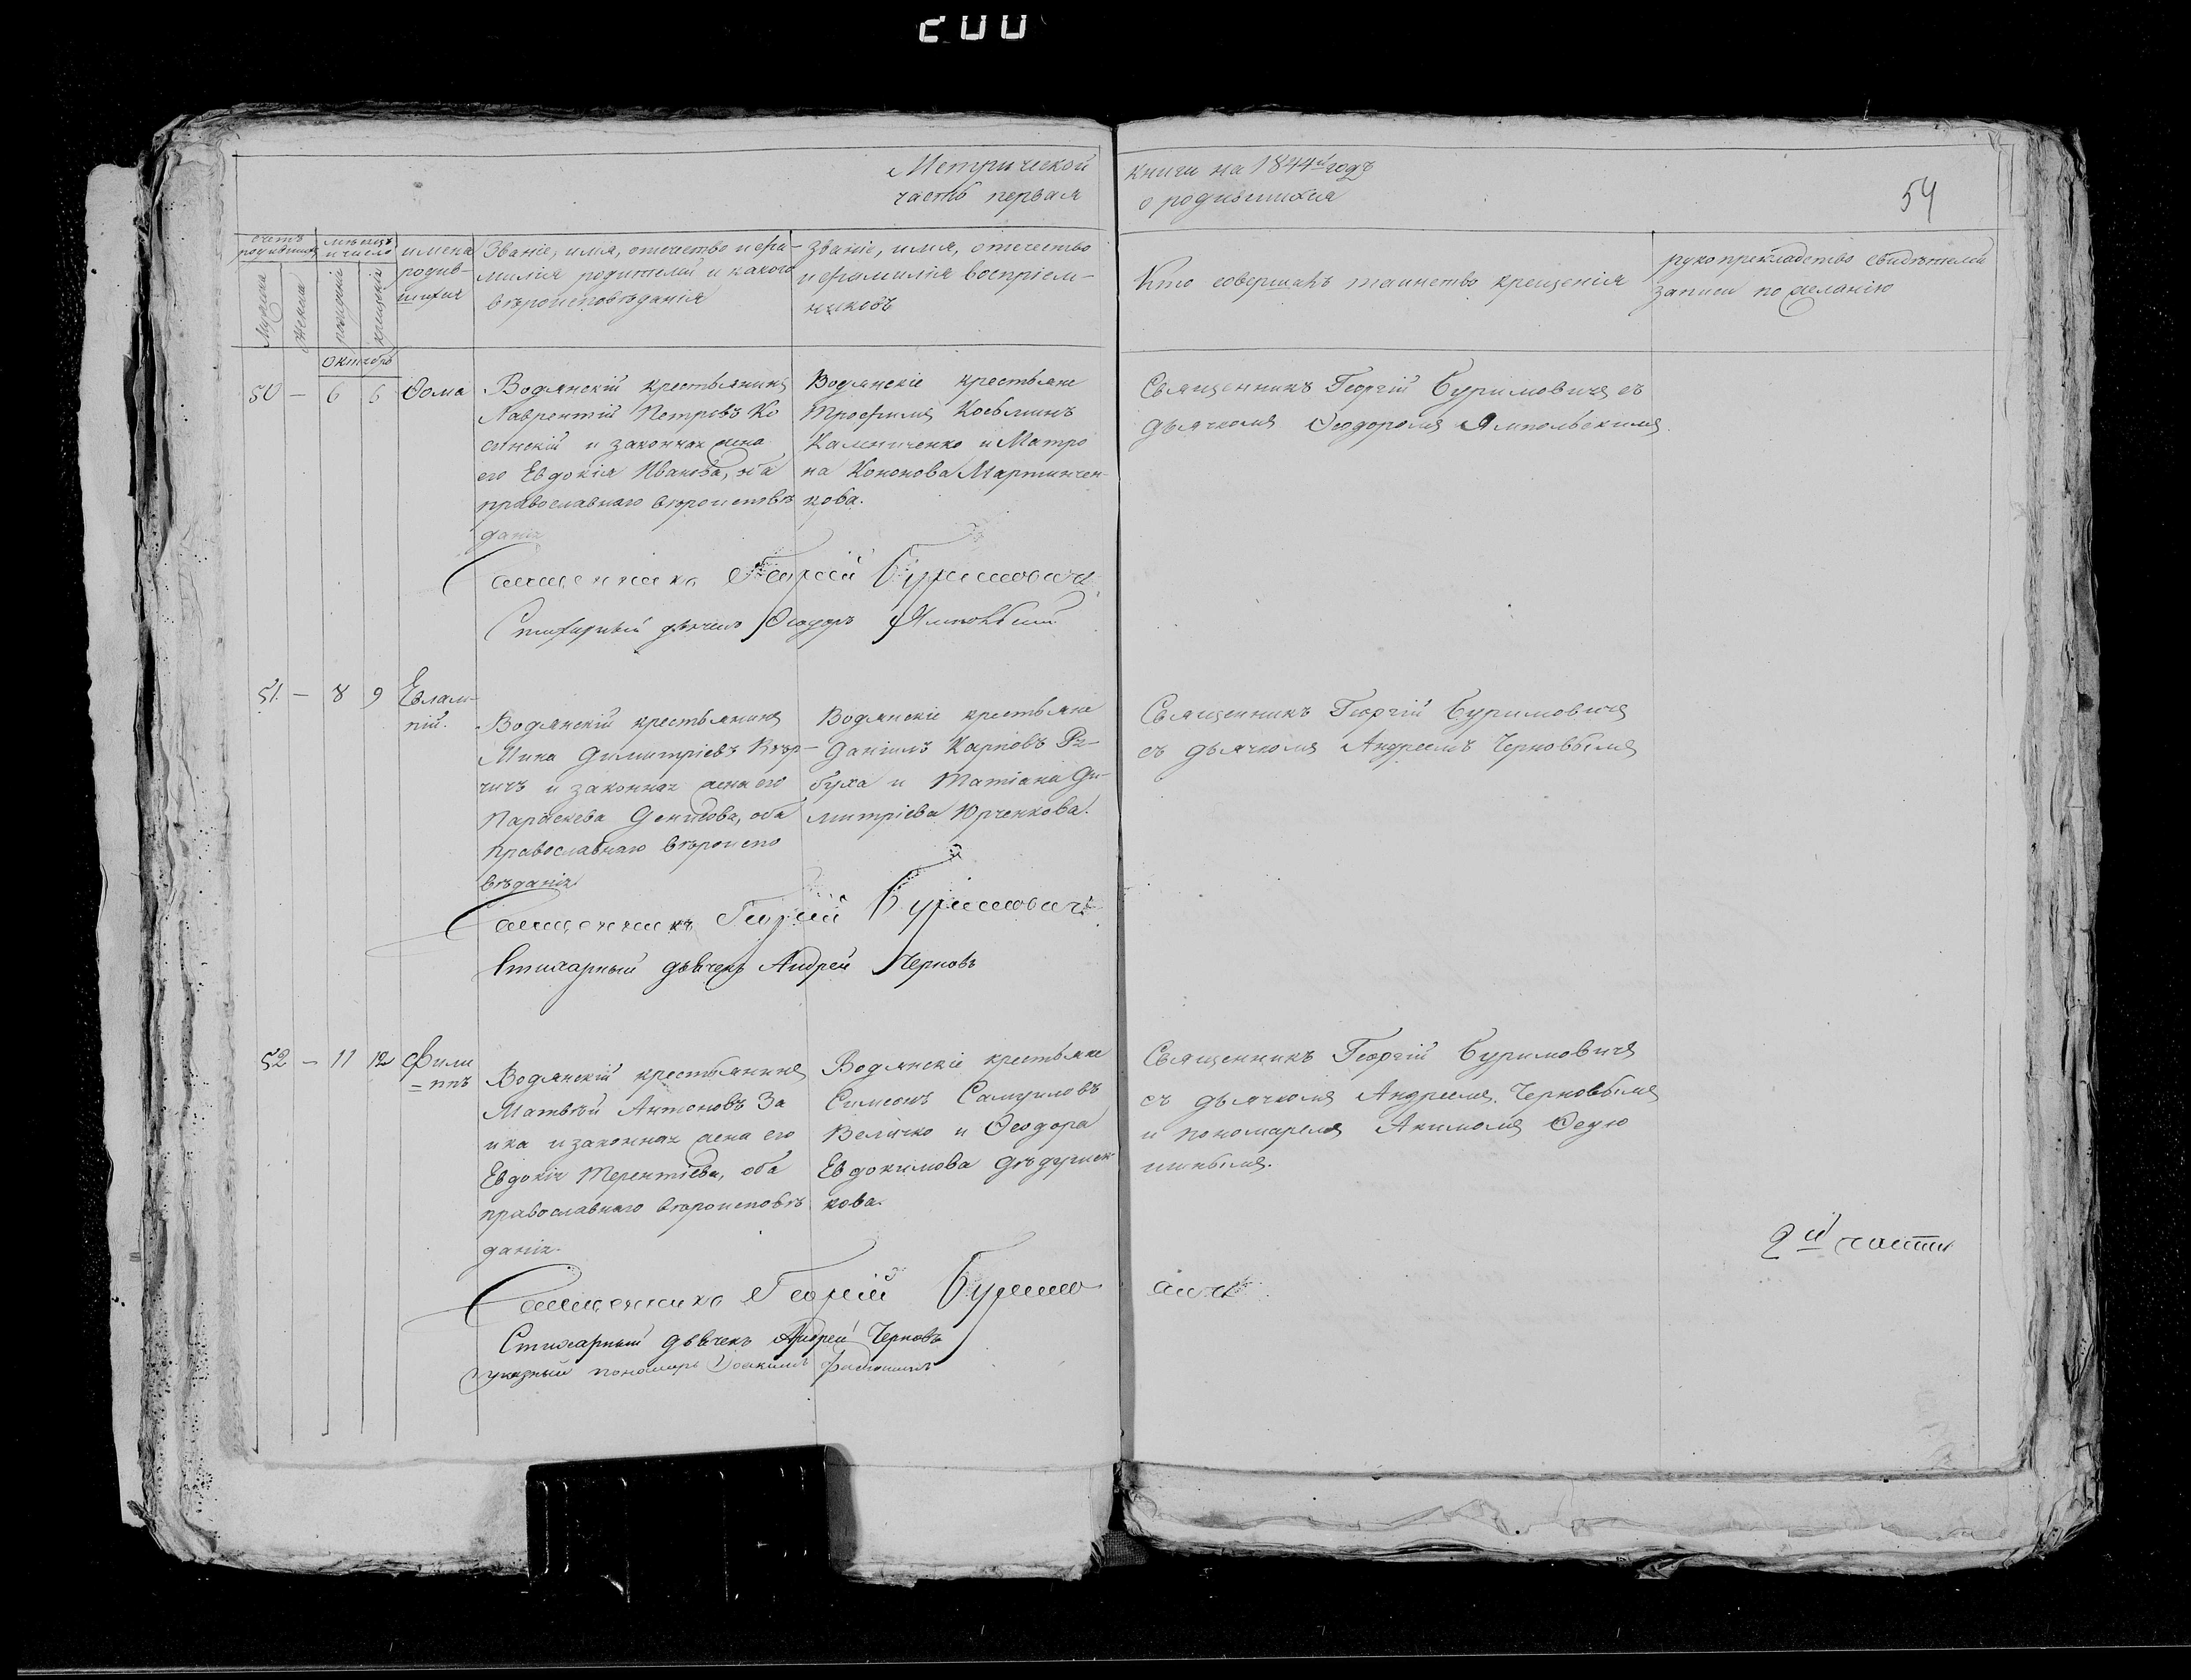 200
Метрической книги на 1844й годъ
часть первая о родившихся
54
счетъ родившихся
мѣсяцъ и число
мужеска
женска
рожденія
крещенія
имена родив-
шихся
Званіе, имя, отечество и фа-
милія родителей и какого
вѣроисповѣданія
Званіе, имя, отечество
и фамилія воспріем-
никовъ
Кто совершалъ таинство крещенія
рукоприкладство свидѣтелей
записи по желанію
октябрь
50 — 6 6 Ѳома
Водянскій крестьянинъ
Лаврентій Петровъ Ко
синскій и законная жена
его Евдокія Иванова, оба
православнаго вѣроисповѣ
данія
Водянскіе крестьяне
Трофимъ Косьминъ
Калениченко и Матро
на Кононова Мартинчен-
кова.
Священникъ Георгій Буримовичъ съ
дьячкомъ Ѳеодоромъ Ямпольскимъ.
Священникъ Георгій Буримовичъ
Стихарный дьячекъ Ѳеодоръ Ямпольскій
51. — 8 9 Евлам-
пій.
Водянскій крестьянинъ
Мина Димитріевъ Кир-
чичъ и законная жена его
Параскева Денисова, оба
православнаго вѣроиспо
вѣданія
Водянскіе крестьяне
Даніилъ Карповъ Ря-
буха и Татіана Ди-
митріева Юрченкова.
Священникъ Георгій Буримовичъ
съ дьячкомъ Андреемъ Черновымъ
Священникъ Георгій Буримовичъ
Стихарный дьячекъ Андрей Черновъ
52 — 11 12 Фили
=ппъ
Водянскій крестьянинъ
Матвѣй Антоновъ За
ика и законная жена его
Евдокія Терентіева, оба
православнаго вѣроисповѣ
данія.
Водянскіе крестьяне
Симеонъ Самуиловъ
Величко и Ѳеодора
Евдокимова Дѣдушен-
кова.
Священникъ Георгій Буримовичъ
съ дьячкомъ Андреемъ Черновымъ
и пономаремъ Акимомъ Ѳедю
шинымъ.
2й части
Священникъ Георгій Буримовичъ
Стихарный дьячекъ Андрей Черновъ
указный пономарь Іоакимъ